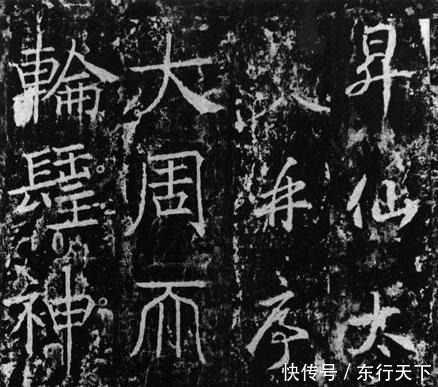 昇仙太
并序
大周𠀑
輪𨲢神
快传号/东行天下